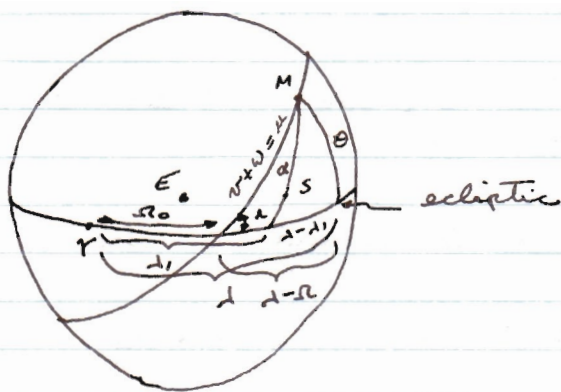 M
v+ω=u
θ
α
E
S
Ω₀
ι
ecliptic
γ
λ₁
λ-λ₁
λ
λ-Ω